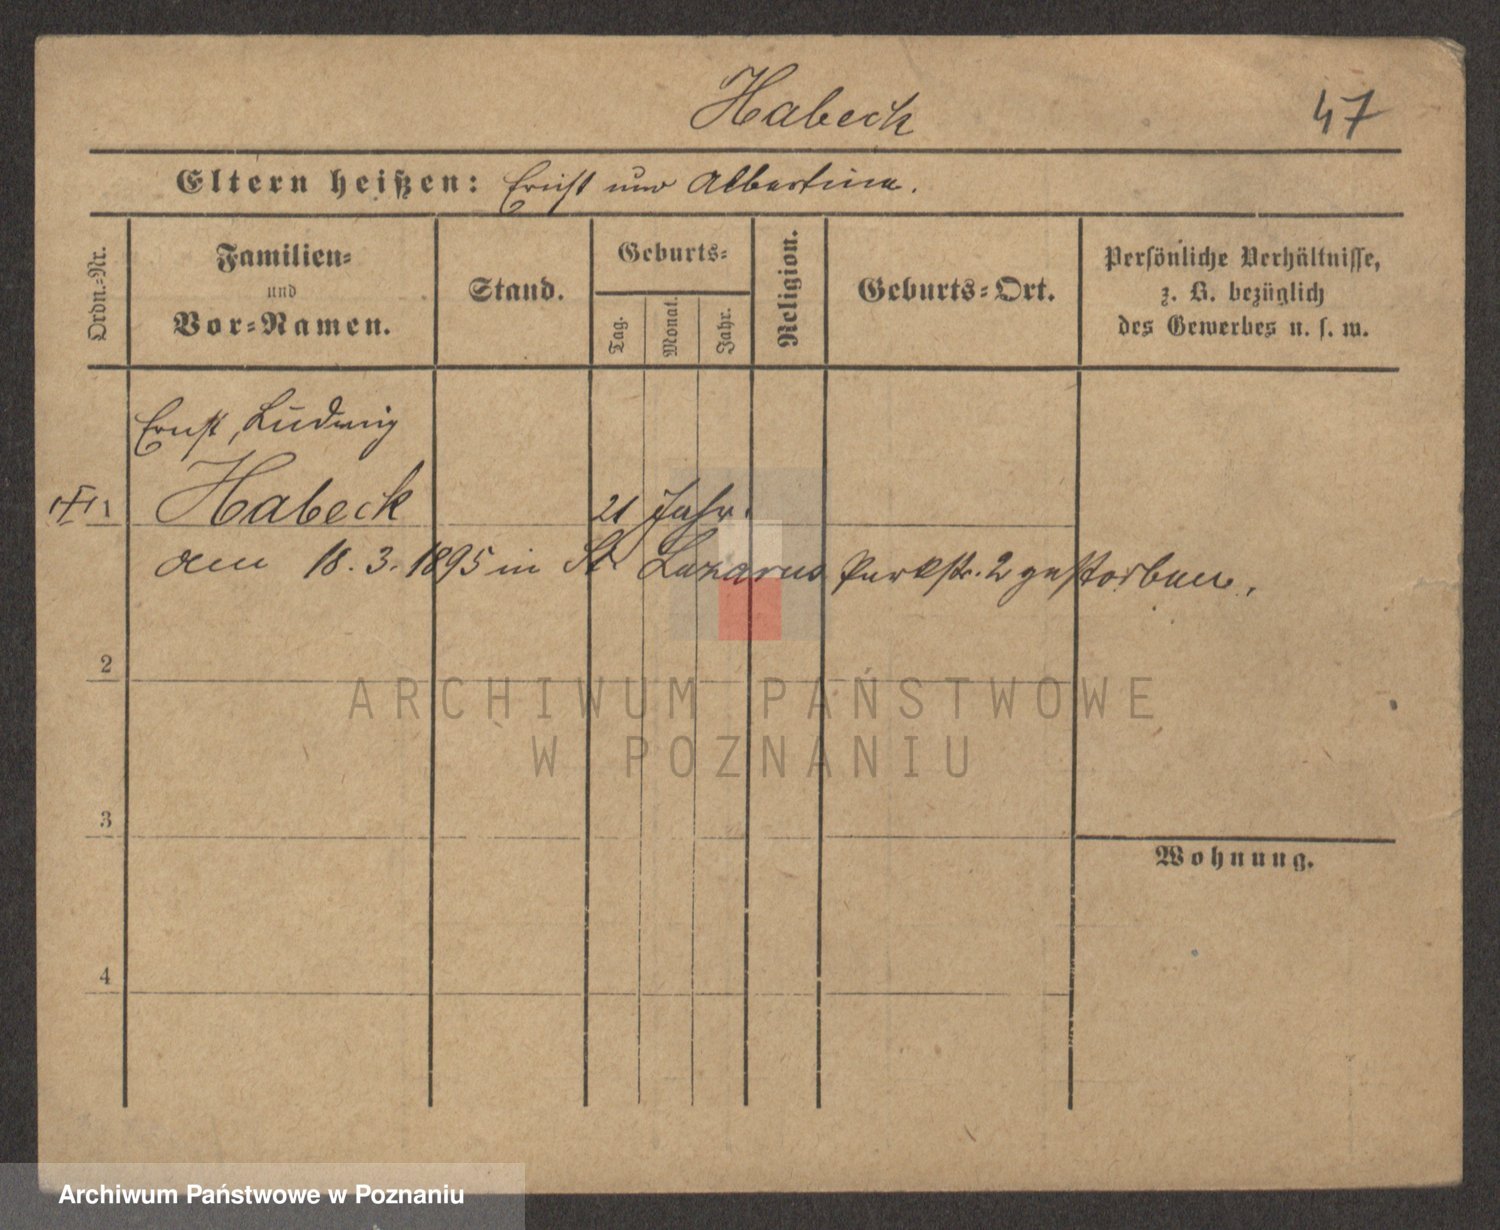 Habeck 47
Eltern heißen: Ernst und Albertine.
Ordn.-Nr.
Familien-
und
Vor-Namen.
Stand.
Geburts-
Tag.
Monat.
Jahr.
Religion.
Geburts-Ort.
Persönliche Verhältnisse,
z. B. bezüglich
des Gewerbes u. s. w.
Ernst, Ludwig
1 Habeck 21 Jahr.
am 18. 3. 1895 in St Lazarus Parkstr. 2 gestorben.
2
ARCHIWUM PAŃSTWOWE
W POZNANIU
3
Wohnung.
4
Archiwum Państwowe w Poznaniu